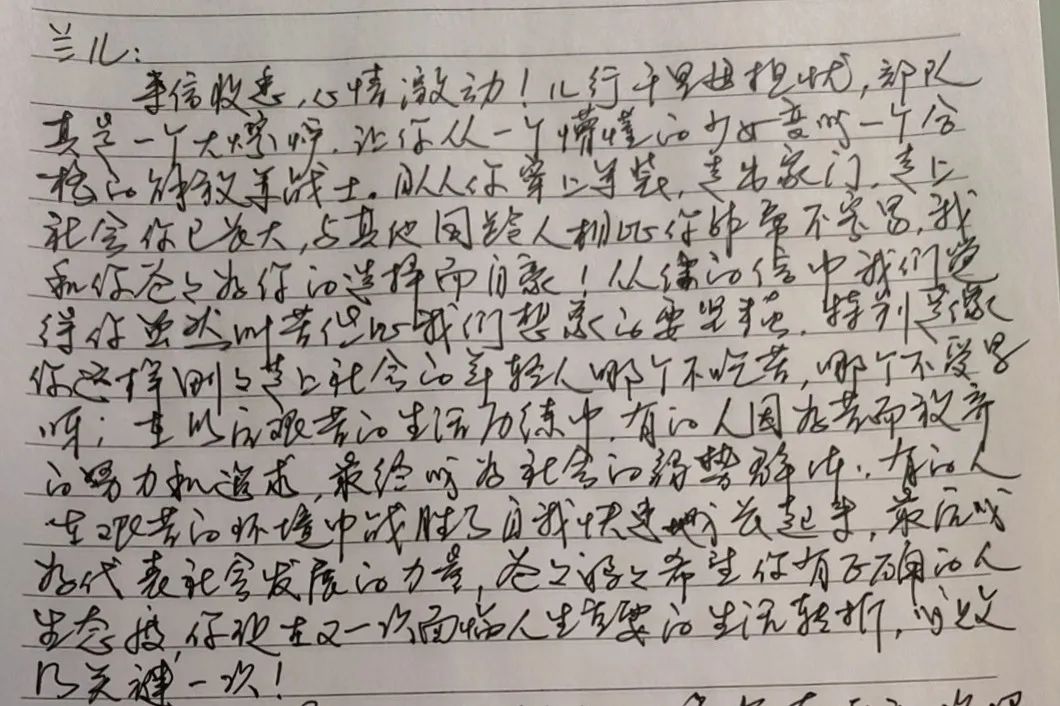 兰儿：
来信收悉，心情激动！儿行千里母担忧，部队
真是一个大熔炉，让你从一个懵懂的少女变成一个合
格的解放军战士。从你穿上军装，走出家门，走上
社会你已长大，与其他同龄人相比你非常不容易，我
和你爸爸为你的选择而自豪！从你的信中我们觉
得你虽然叫苦但比我们想象的要坚强，特别是像
你这样刚刚走上社会的年轻人哪个不吃苦，哪个不受累
呀；在以后艰苦的生活历练中，有的人因为苦而放弃
的努力和追求，最终成为社会的弱势群体；有的人
在艰苦的环境中战胜了自我快速地成长起来，最后成
为代表社会发展的力量，爸爸妈妈希望你有正确的人
生态度，你现在又一次面临人生重要的生活转折，成败
乃关键一次！